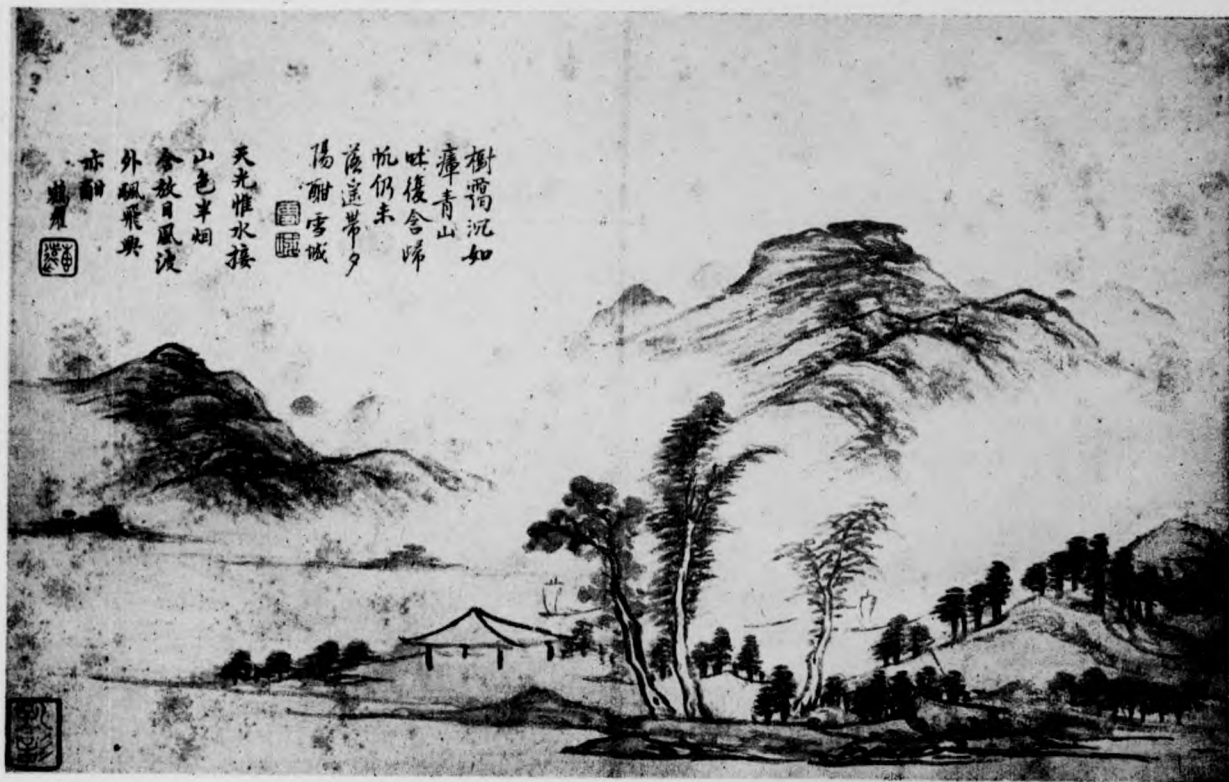 樹靄沉如
瘴青山
昧復含歸
帆仍未
落遙帶夕
陽酣雪城
天光惟水接
山色半烟
含放目風波
外颿飛興
亦酣